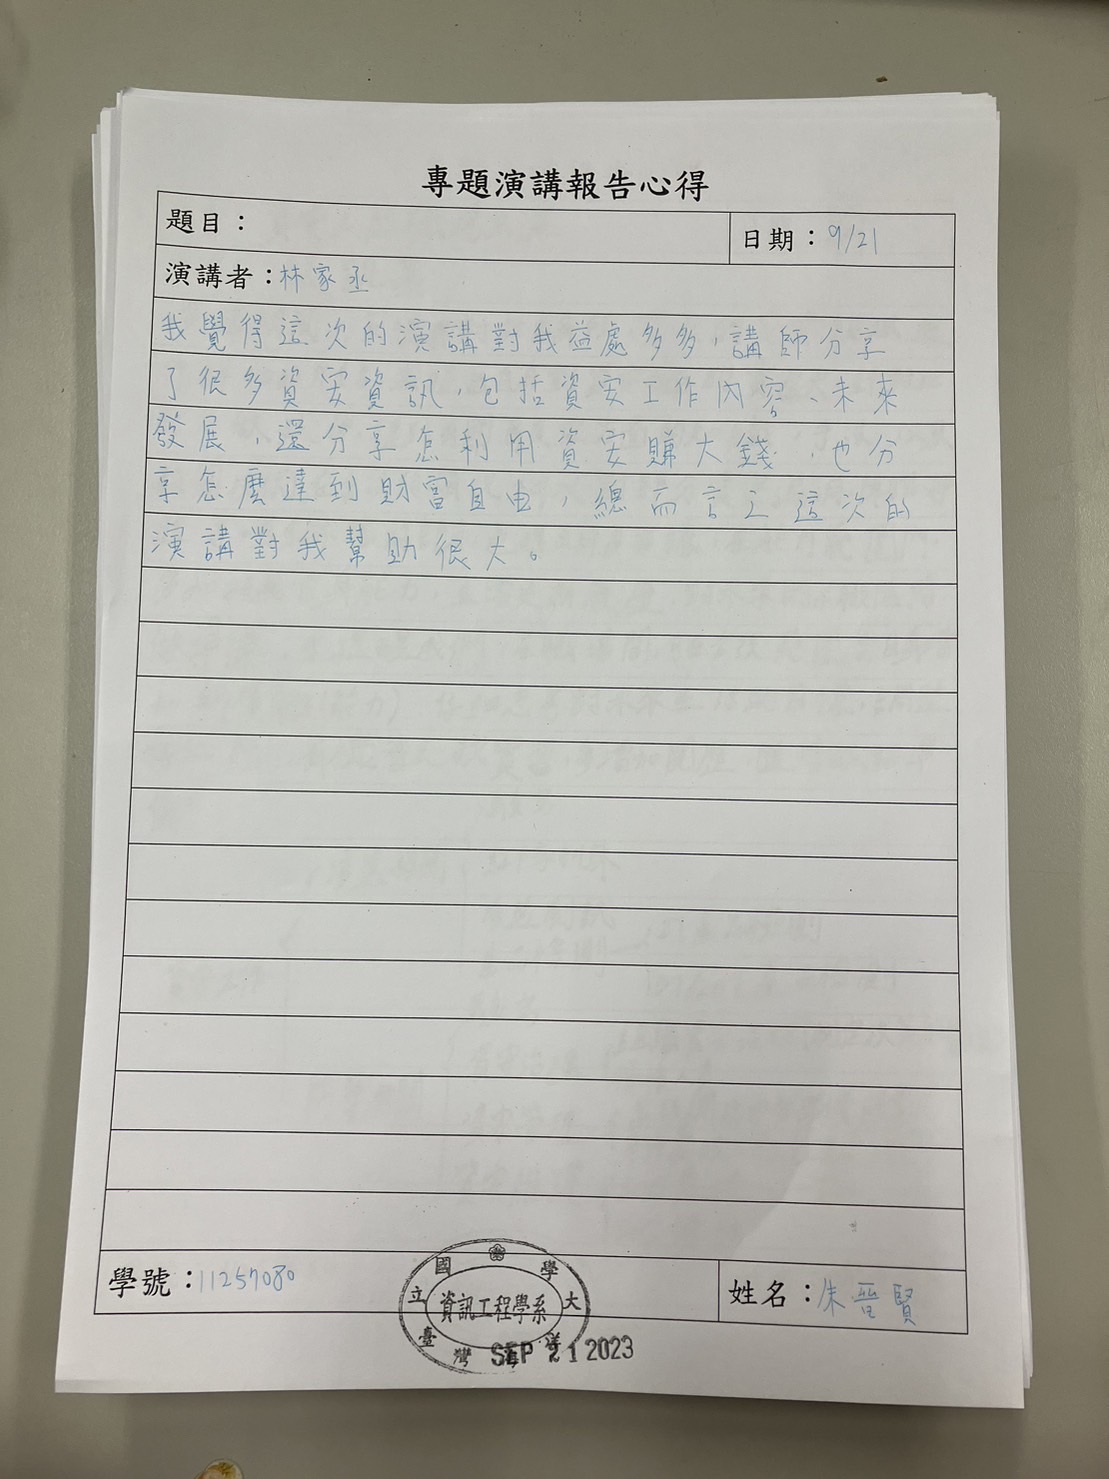 專題演講報告心得
題目：
日期：9/21
演講者：林家丞
我覺得這次的演講對我益處多多，講師分享
了很多資安資訊，包括資安工作內容、未來
發展，還分享怎利用資安賺大錢，也分
享怎麼達到財富自由，總而言之這次的
演講對我幫助很大。
學號：11257080
姓名：朱晉賢
國立臺灣海洋大學
資訊工程學系
SEP 21 2023